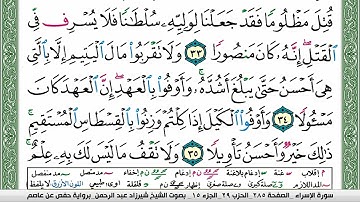 قُتِلَ مَظْلُومًا فَقَدْ جَعَلْنَا لِوَلِيِّهِۦ سُلْطَٰنًا فَلَا يُسْرِف فِّى
ٱلْقَتْلِ ۖ إِنَّهُۥ كَانَ مَنصُورًا ٣٣ وَلَا تَقْرَبُوا۟ مَالَ ٱلْيَتِيمِ إِلَّا بِٱلَّتِى
هِىَ أَحْسَنُ حَتَّىٰ يَبْلُغَ أَشُدَّهُۥ ۚ وَأَوْفُوا۟ بِٱلْعَهْدِ ۖ إِنَّ ٱلْعَهْدَ كَانَ
مَسْـُٔولًا ٣٤ وَأَوْفُوا۟ ٱلْكَيْلَ إِذَا كِلْتُمْ وَزِنُوا۟ بِٱلْقِسْطَاسِ ٱلْمُسْتَقِيمِ ۚ
ذَٰلِكَ خَيْرٌ وَأَحْسَنُ تَأْوِيلًا ٣٥ وَلَا تَقْفُ مَا لَيْسَ لَكَ بِهِۦ عِلْمٌ ۚ
سورة الإسراء. الصفحة ٢٨٥ الجزء ١٥ بصوت الشيخ شيرزاد عبد الرحمن برواية حفص عن عاصم